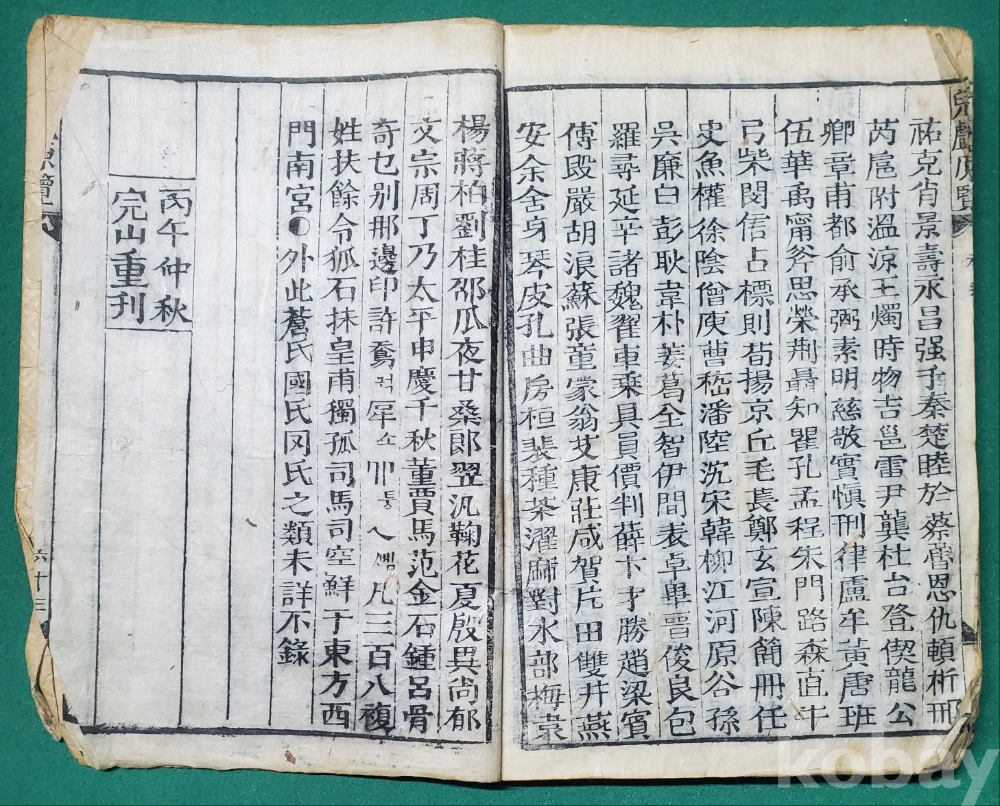 祐克肖景壽永昌强于秦楚睦於蔡魯恩仇頓析邢
芮扈附溫涼玉燭時物吉邕雷尹龔杜台登偰龍公
卿章甫都俞承弼素明慈敬實愼刑律盧牟黃唐班
伍華禹甯斧思榮荆聶知瞿孔孟程朱門路森直牛
弓柴閔信占標則荀揚京丘毛長鄭玄宣陳簡冊任
史魚權徐陰僧庾曹嵆潘陸沈宋韓柳江河原谷孫
吳廉白彭耿韋朴姜葛全智伊間表卓畢晋俊良包
羅尋延辛諸魏翟車乗具員價判薛卞才勝趙梁賓
傅段嚴胡浪蘇張童蒙翁艾康莊咸賀片田雙井燕
安余舍身琴皮孔曲房桓裴種桼濯麻對水部梅袁
楊蔣柏劉桂邵瓜夜甘桑郎翌汎鞠花夏殷異尚郁
文宗周丁乃太平申慶千秋董賈馬范金石鍾呂骨
奇乜别那邊印許凡三百八複
姓扶餘令狐石抹皇甫獨孤司馬司空鮮于東方西
門南宮●外此氏國氏岡氏之類未詳不錄
丙午仲秋
完山重刊
六十三
kobay